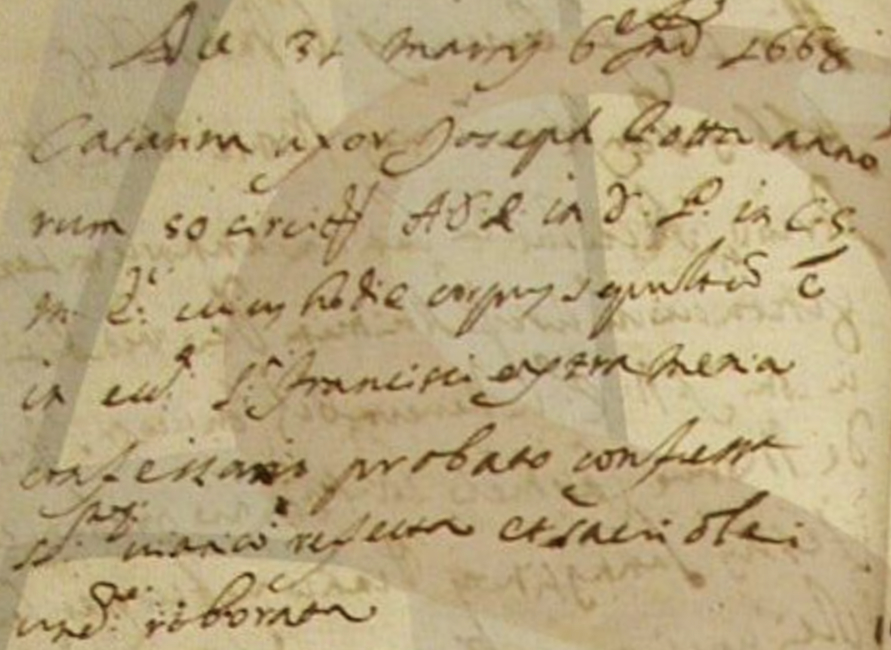 Die 31 Martij 6 Ind. 1668
Catarina uxor Joseph Cotta anno
rum 50 circiter A S R in D. P. in C. S.
M. E. cuius hodie corpus sepultū ē
in eccl. S. Francisci extra menia
confessario probato confessa
SS. viatico refecta et sacri olei
unct. roborata